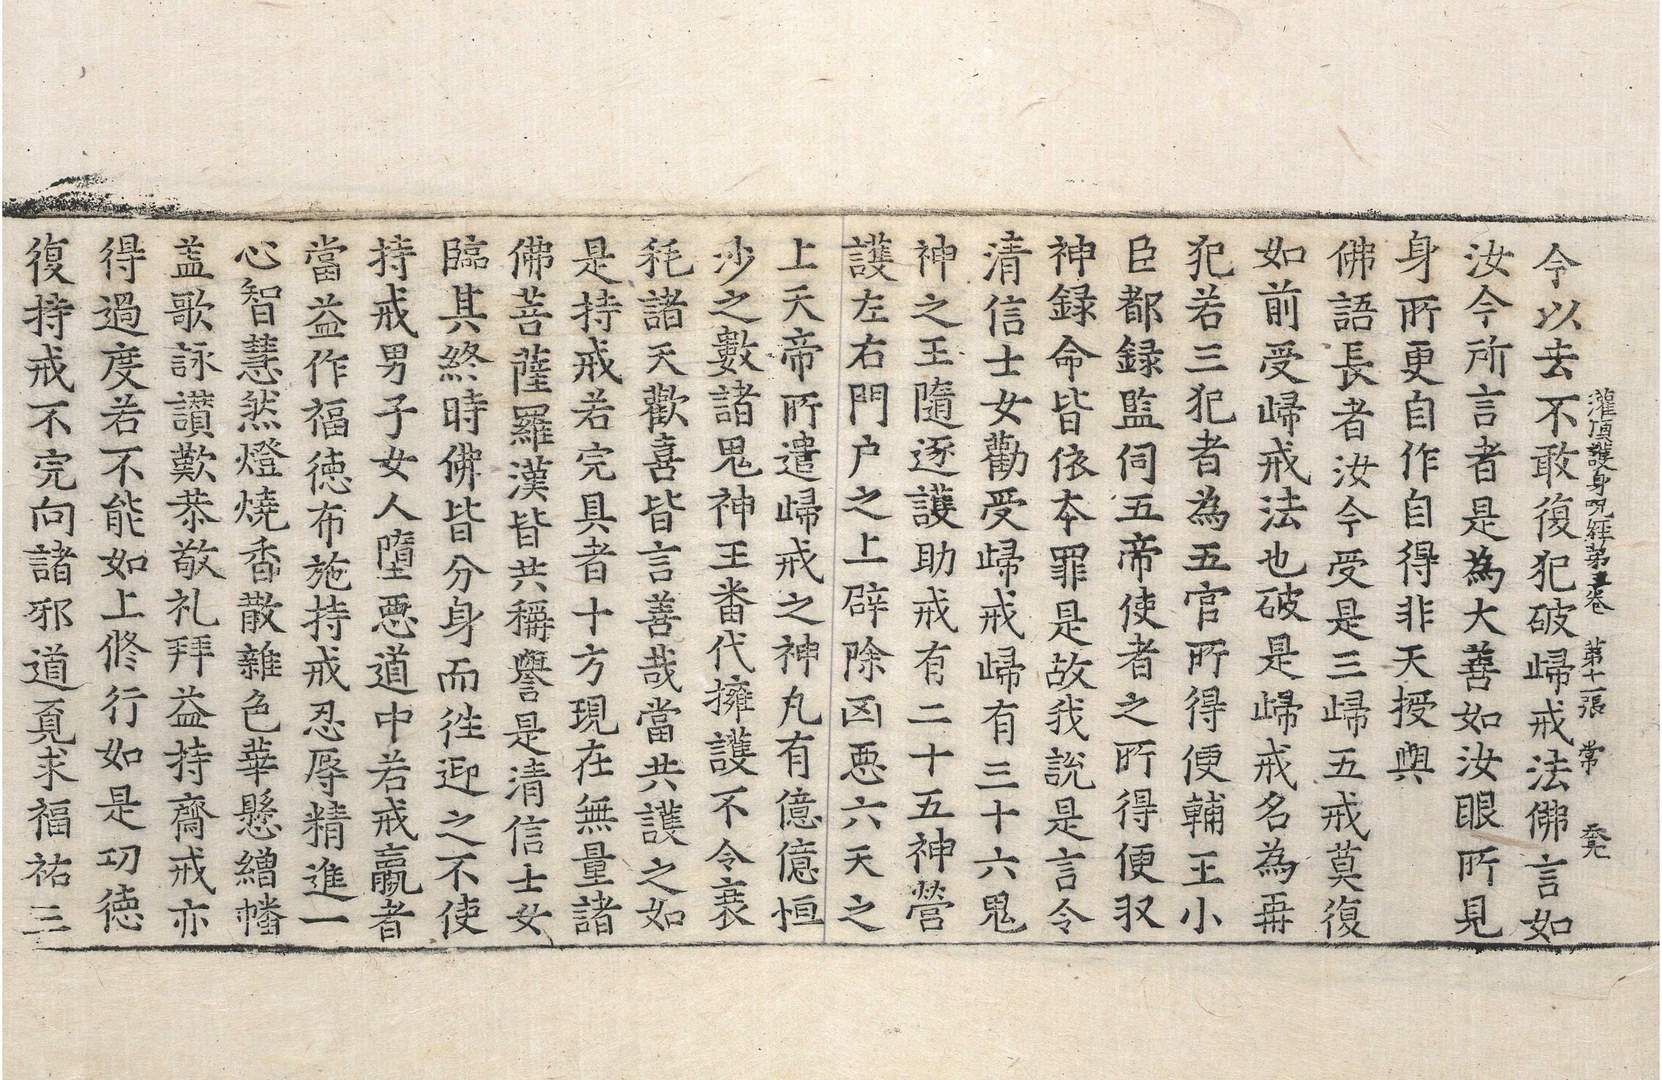 灌頂護身呪經第三卷 第十一張 常 奉先
今以去不敢復犯破歸戒法佛言如
汝今所言者是為大善如汝眼所見
身所更自作自得非天授與
佛語長者汝今受是三歸五戒莫復
如前受歸戒法也破是歸戒名為再
犯若三犯者為五官所得便輔王小
臣都錄監伺五帝使者之所得便収
神録命皆依本罪是故我說是言令
清信士女勸受歸戒歸有三十六鬼
神之王隨逐護助戒有二十五神營
護左右門户之上辟除凶惡六天之
上天帝所遣歸戒之神凡有億億恒
沙之數諸鬼神王番代擁護不令衰
耗諸天歡喜皆言善哉當共護之如
是持戒若完具者十方現在無量諸
佛菩薩羅漢皆共稱譽是清信士女
臨其終時佛皆分身而徃迎之不使
持戒男子女人墮惡道中若戒羸者
當益作福德布施持戒忍辱精進一
心智慧然燈燒香散雜色華懸繒幡
盖歌詠讃歎恭敬礼拜益持齋戒亦
得過度若不能如上修行如是功德
復持戒不完向諸邪道覓求福祐三